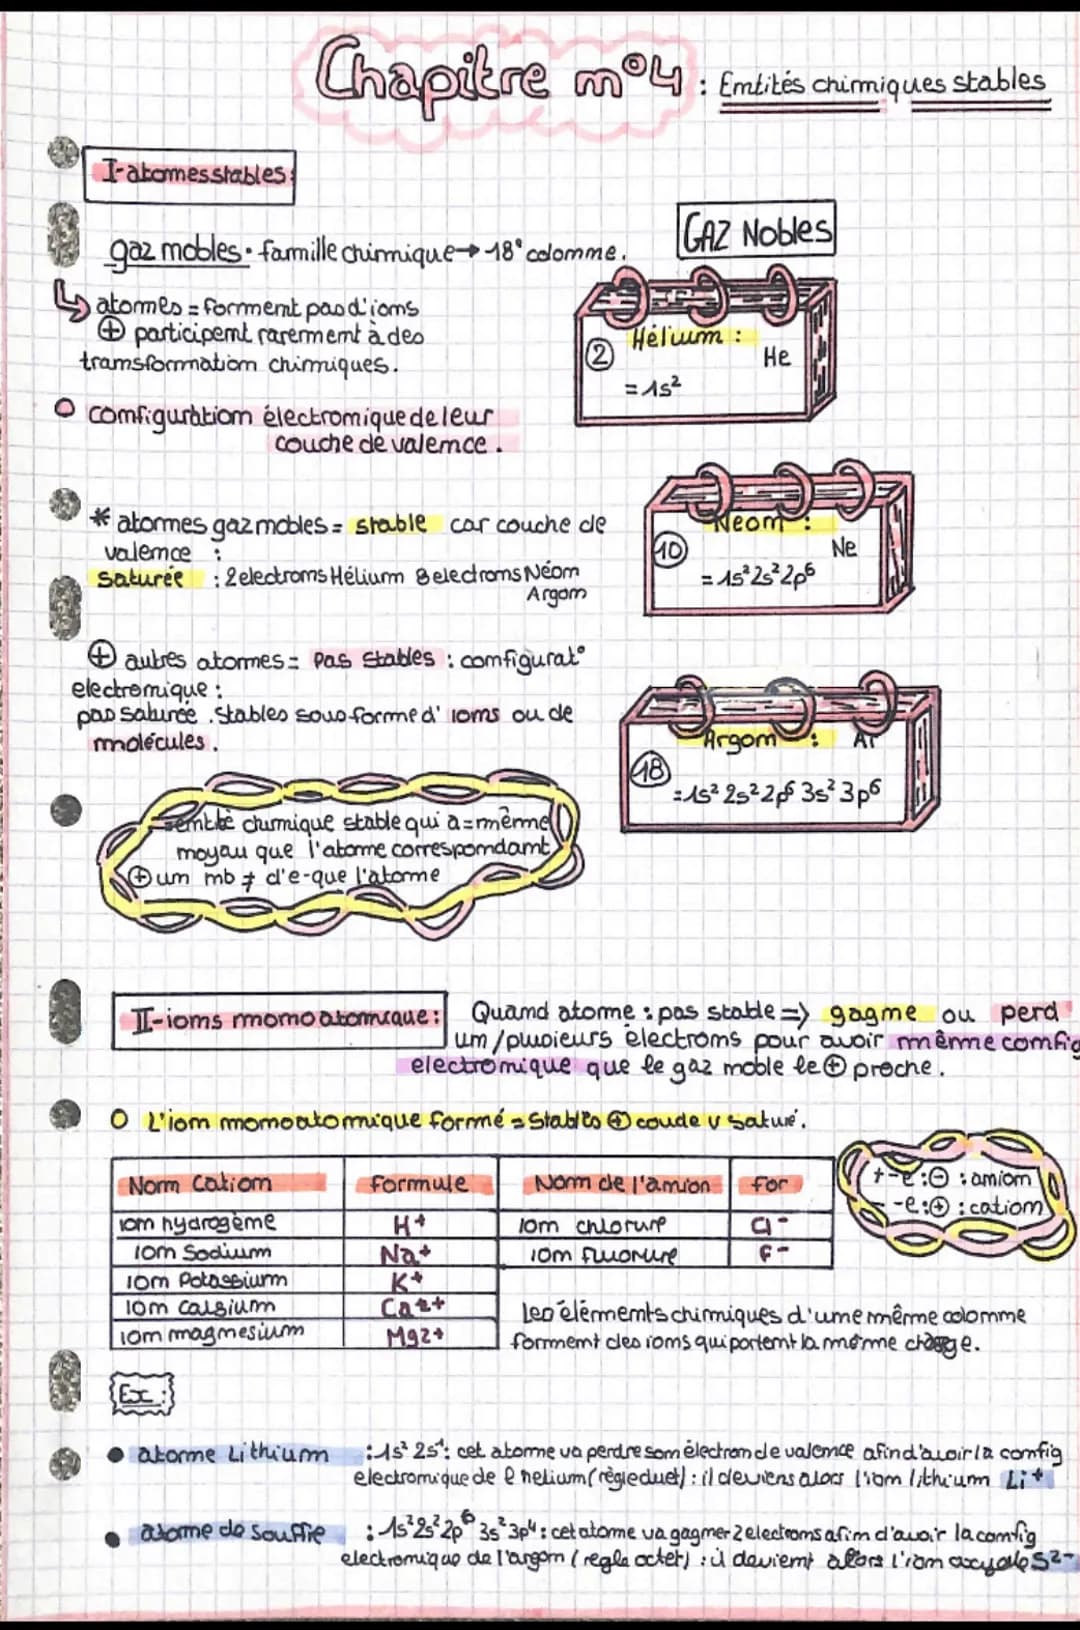 Chapitre n°4 : Entités chimiques stables
I-atomes stables:
GAZ Nobles
gaz nobles • famille chimique → 18° colonne.
↳ atomes = forment pas d'ions
⊕ participent rarement à des
transformation chimiques.
2 Hélium : He
= 1s²
configuration électronique de leur
couche de valence.
* atomes gaz nobles = stable car couche de
valence :
saturée : 2 electrons Hélium 8 electrons Néon
Argon
10 Neon : Ne
= 1s² 2s² 2p⁶
⊕ autres atomes = pas stables : configurat°
electronique :
pas saturée. Stables sous forme d'ions ou de
molécules.
18 Argon : Ar
= 1s² 2s² 2p⁶ 3s² 3p⁶
=entité chimique stable qui a = même
noyau que l'atome correspondant
⊕ un nb ≠ d'e- que l'atome
II-ions monoatomique :
Quand atome : pas stable => gagne ou perd
un/plusieurs électrons pour avoir même config
electronique que le gaz noble le ⊕ proche.
O L'ion monoatomique formé = Stables ⊕ coude v saturé.
Nom Cation formule Nom de l'anion for
ion hydrogène H+ ion chlorure Cl-
ion Sodium Na+ ion fluorure F-
ion Potassium K+
ion calsium Ca2+
ion magnesium Mg2+
+ -e : ⊖ : anion
- -e : ⊕ : cation
Les éléments chimiques d'une même colonne
forment des ions qui portent la même charge.
Ex :
• atome Lithium : 1s² 2s¹ : cet atome va perdre son électron de valence afin d'avoir la config
electronique de l helium (règle duet) : il deviens alors l'ion lithium Li+
• atome de souffre : 1s² 2s² 2p⁶ 3s² 3p⁴ : cet atome va gagner 2 electrons afin d'avoir la config
electronique de l'argon (regle octet) : il devient alors l'ion S2-